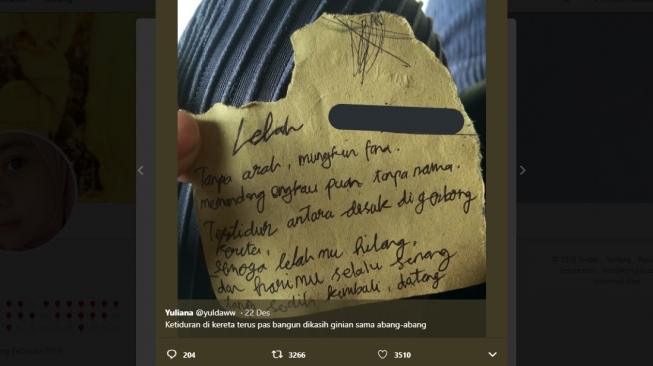 Lelah
Tanpa arah, mungkin fana.
memandang engkau puan tanpa nama.
Tertidur antara desak di gerbong
kereta,
semoga lelah mu hilang,
dan harimu selalu senang
tanpa sedih kembali datang
Yuliana @yuldaww · 22 Des
Ketiduran di kereta terus pas bangun dikasih ginian sama abang-abang
204 3266 3510